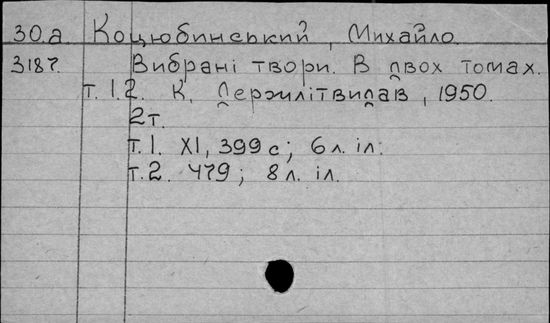 30.а. Коцюбинський, Михайло.
3187. Вибрані твори. В двох томах.
т. 1.2. К, Держлітвидав, 1950.
2т.
т.1. XI, 399 с; 6 л. іл.
т.2. 479; 8 л. іл.